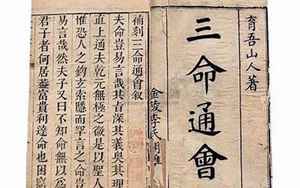 育吾山人著
三命通會
補刻三命通會叙
夫命豈易言哉其旨深其義奧其理
直上通夫乾元無極之後是以聖人
惟恐人之鈎玄索隱而罕言之命
易言哉然夫子又曰不知命無以爲
君子者何居蓋富貴利達命也